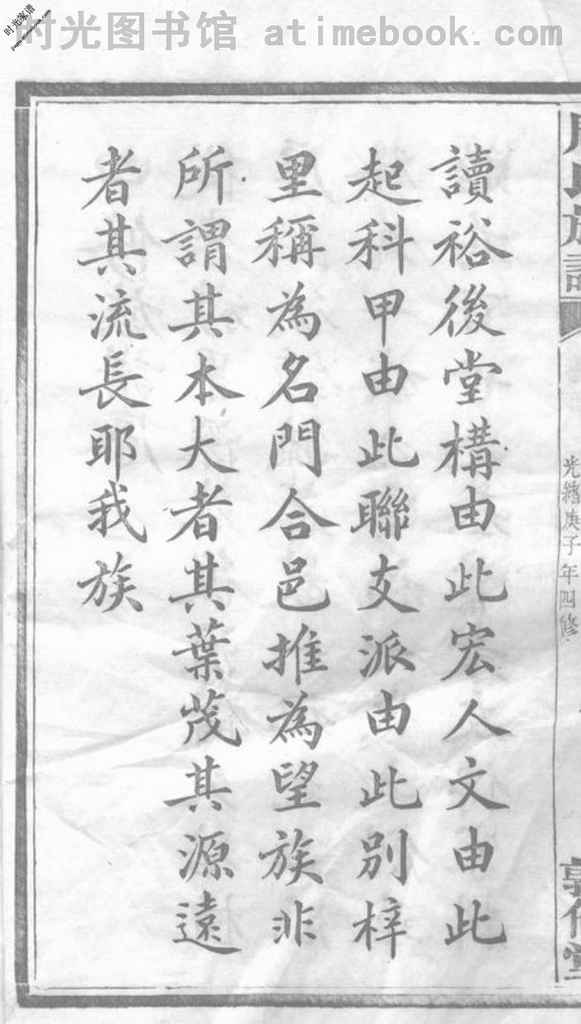 时光家谱
时光图书馆 atimebook.com
族譜
光緒庚子年四修
讀裕後堂構由此宏人文由此
起科甲由此聯支派由此別梓
里稱為名門合邑推為望族非
所謂其本大者其葉茂其源遠
者其流長耶我族